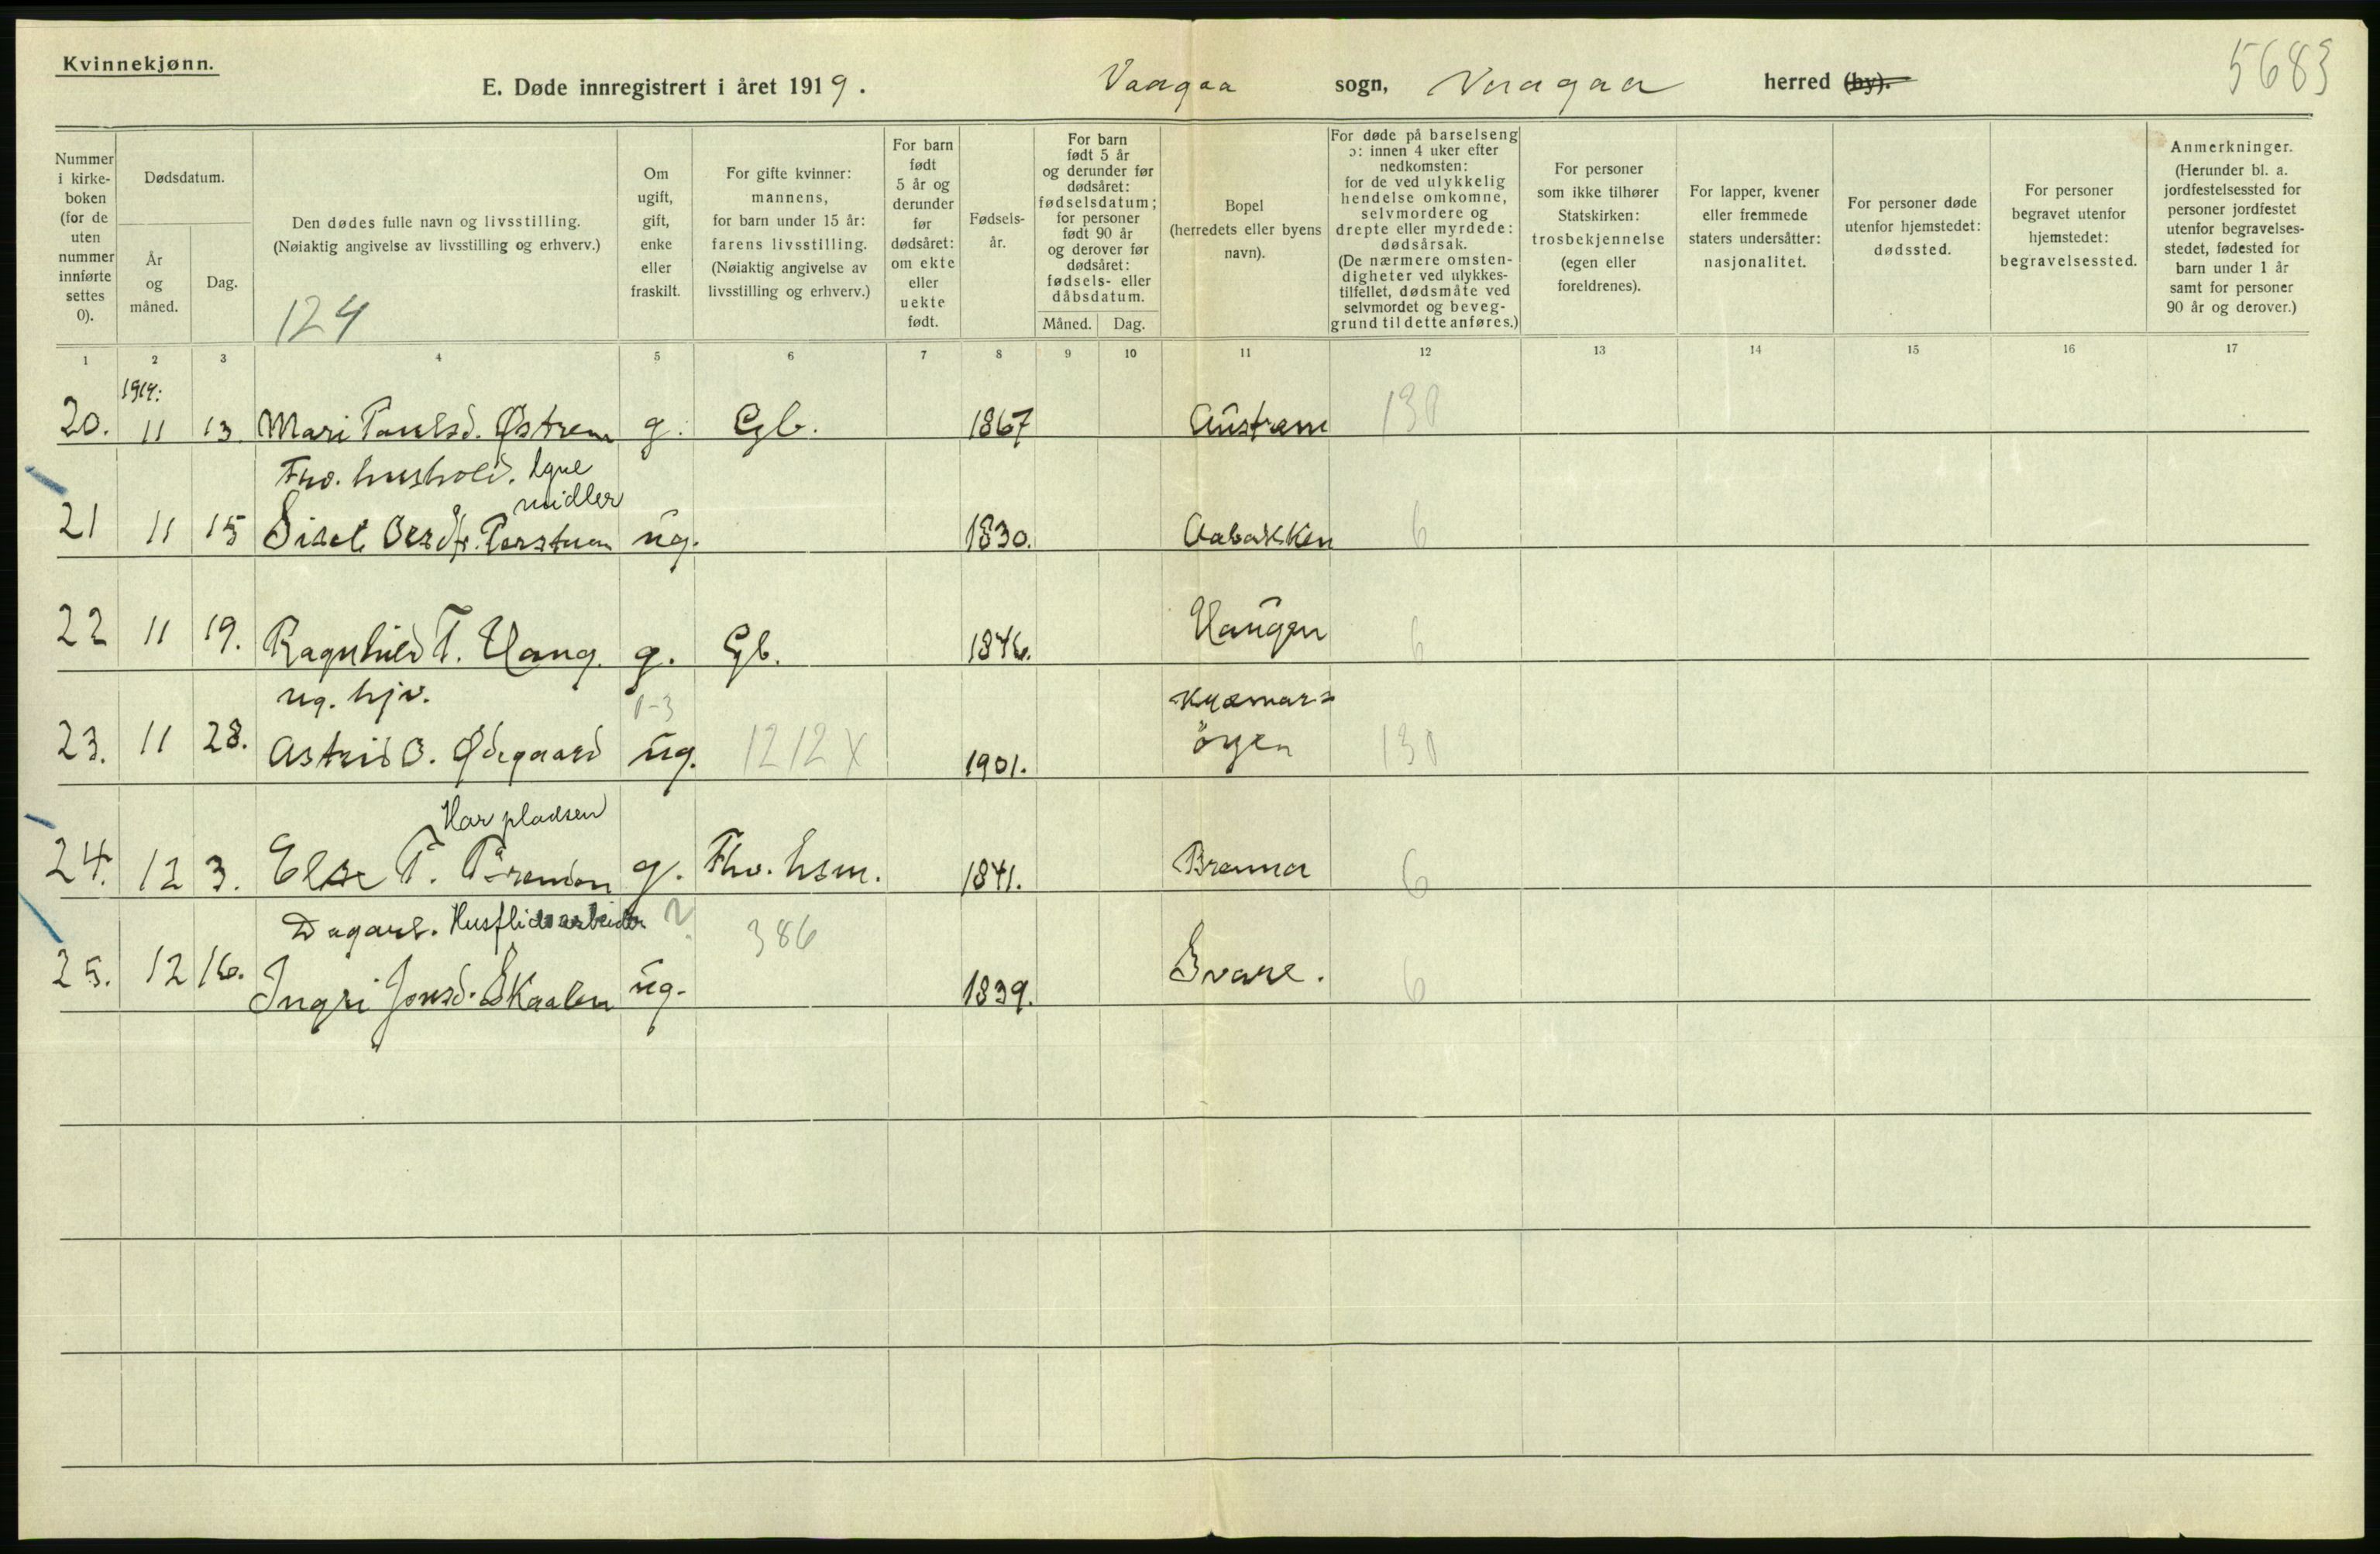 Kvinnekjønn.
E. Døde innregistrert i året 1919. Vaagaa sogn, Vaagaa herred (by).
5683
Nummer i kirke-boken (for de uten nummer innførte settes 0).
Dødsdatum.
År og måned.
Dag.
Den dødes fulle navn og livsstilling.
(Nøiaktig angivelse av livsstilling og erhverv.)
124
Om ugift, gift, enke eller fraskilt.
For gifte kvinner: mannens, for barn under 15 år: farens livsstilling.
(Nøiaktig angivelse av livsstilling og erhverv.)
For barn født 5 år og derunder før dødsåret: om ekte eller uekte født.
Fødsels-år.
For barn født 5 år og derunder før dødsåret: fødselsdatum; for personer født 90 år og derover før dødsåret: fødsels- eller dåbsdatum.
Måned.
Dag.
Bopel (herredets eller byens navn).
For døde på barselseng ɔ: innen 4 uker efter nedkomsten: for de ved ulykkelig hendelse omkomne, selvmordere og drepte eller myrdede: dødsårsak.
(De nærmere omsten-digheter ved ulykkes-tilfellet, dødsmåte ved selvmordet og beveg-grund til dette anføres.)
For personer som ikke tilhører Statskirken: trosbekjennelse (egen eller foreldrenes).
For lapper, kvener eller fremmede staters undersåtter: nasjonalitet.
For personer døde utenfor hjemstedet: dødssted.
For personer begravet utenfor hjemstedet: begravelsessted.
Anmerkninger.
(Herunder bl. a. jordfestelsessted for personer jordfestet utenfor begravelses-stedet, fødested for barn under 1 år samt for personer 90 år og derover.)
1 2 3 4 5 6 7 8 9 10 11 12 13 14 15 16 17
1919:
20. 11 13. Mari Paulsd. Østrem g. Gb. 1867 Austrem 130
Fhv. hushold. Egne midler
21 11 15 Sisel ug. 1830. Aabakken 6
22 11 19. Ragnhild T. Haug. g. Gb. 1846. Haugen 6
ug. hjv. 0-3
23. 11 28. Astrid O. Ødegaard ug. 1212 X 1901. 130
Har pladsen
24. 12 3. Else T. g. Fhv. hsm. 1841. 6
Dagarb. Husflidsarbeider ? 386
25. 12 16. Ingri Jonsd. Skaalen ug. 1839. Svare. 6